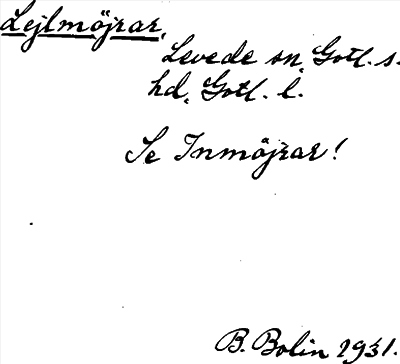 Lejlmöjrar,
Levede sn, Gotl. s.
hd, Gotl. l.
Se Inmöjrar!
B. Bolin 1931.